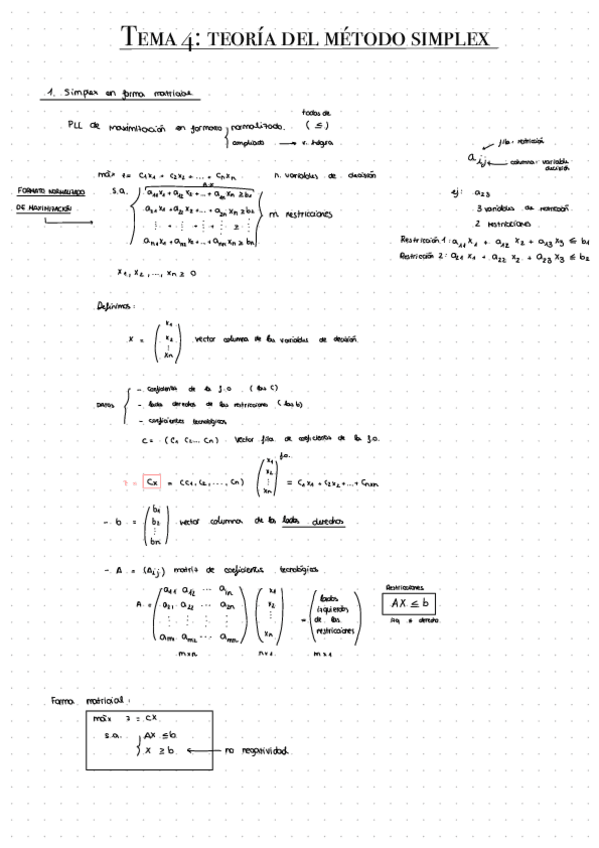 TEMA 4: TEORÍA DEL MÉTODO SIMPLEX
1. Simplex en forma matricial
PLL de maximización en formato { normalizado. todas de (≤)
ampliado → v. holgura
máx z = C1X1 + C2X2 + ... + CnXn n. variables de decisión
FORMATO NORMALIZADO
DE MAXIMIZACIÓN
s.a.
m restricciones
X1, X2, ..., Xn ≥ 0
aij
fila = restricción
columna = variable decisión
ej: a23
3 variables de
2 restricciones
Restricción 1: a11 X1 + a12 X2 + a13 X3 ≤ b1
Restricción 2: a21 X1 + a22 X2 + a23 X3 ≤ b2
Definimos:
X = (X1 X2 ⋮ Xn) vector columna de las variables de decisión.
DATOS
- coeficientes de la f.o. (las C)
- lados derechos de las restricciones (las b)
- coeficientes tecnológicos
C = (C1 C2 ... Cn) Vector fila de coeficientes de la f.o.
f.o.
z = CX = (C1, C2, ..., Cn) (X1 X2 ⋮ Xn) = C1X1 + C2X2 + ... + CnXn
- b = (b1 b2 ⋮ bn) vector columna de los lados derechos
- A = (Aij) matriz de coeficientes tecnológicos
A = (a11 a12 ... a1n
a21 a22 ... a2n
am1 am2 ... amn) (X1 X2 ⋮ Xn) = (lados izquierdos de las restricciones)
mxn nx1 mx1
Restricciones
AX ≤ b
izq. derecho
Forma matricial:
máx z = CX
s.a. { AX ≤ b
X ≥ b ← no negatividad